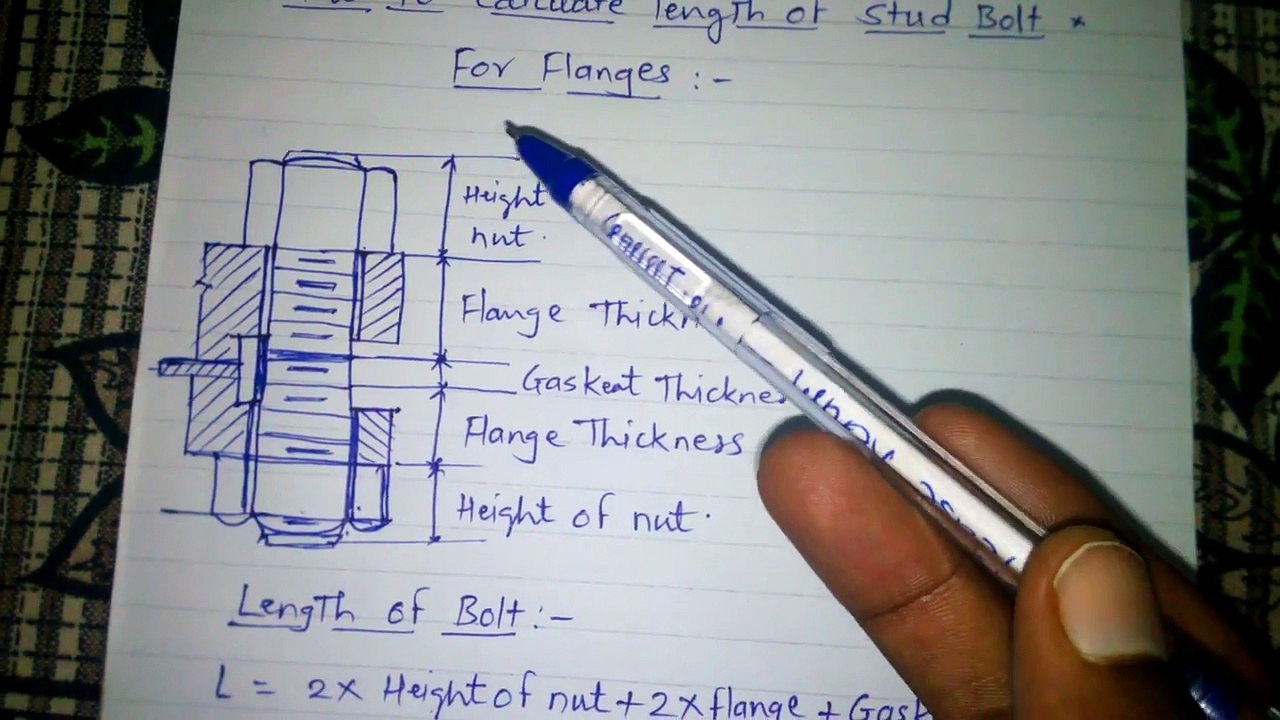 How To Calculate length of Stud Bolt *
For Flanges :-
Height
nut.
Flange Thickn
Gaskeat Thicknes
Flange Thickness
Height of nut.
Length of Bolt:-
L = 2x Height of nut + 2x flange + Gask